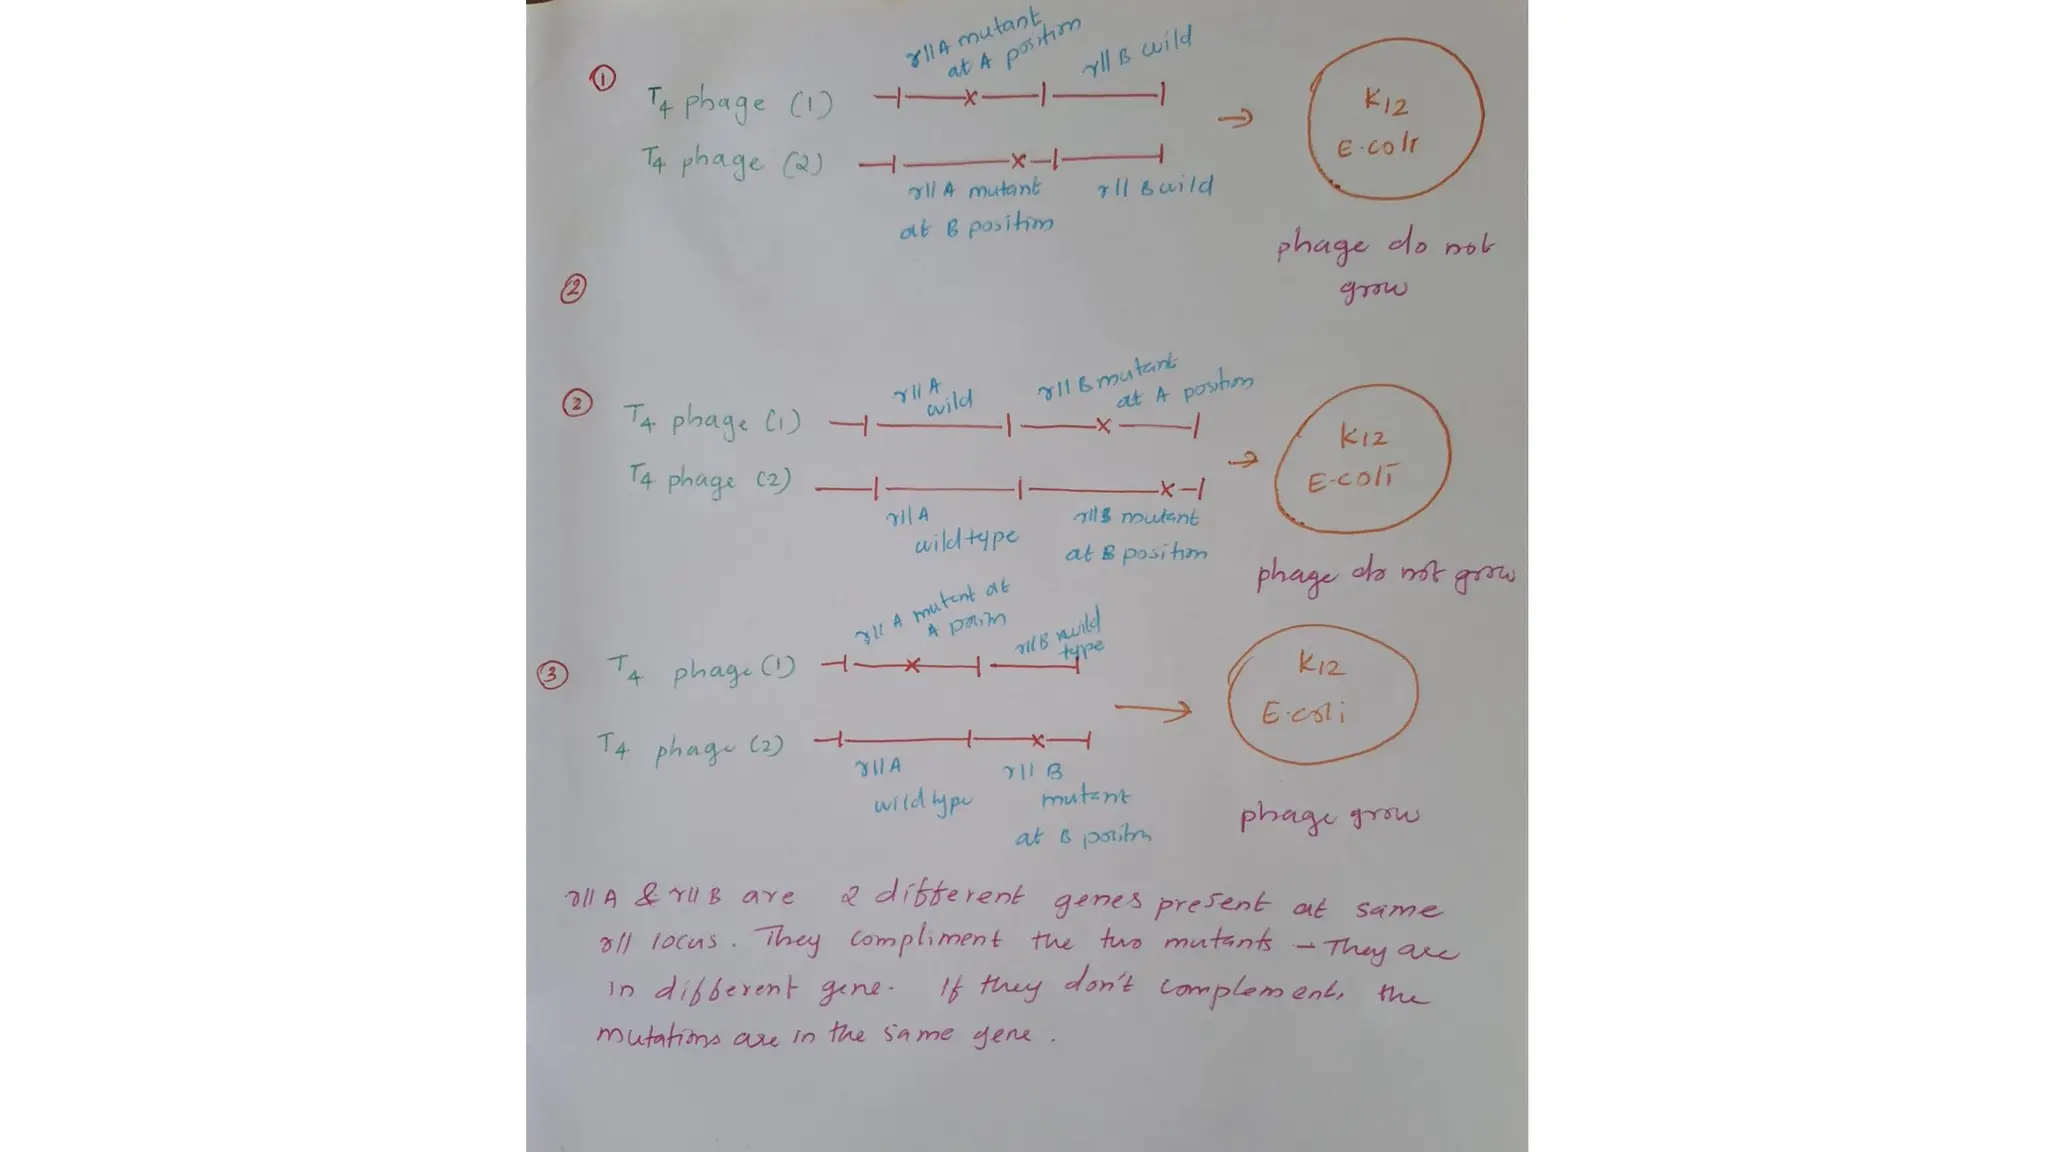 ①
rII A mutant
at A position
rII B wild
T4 phage (1)
K12
E.coli
T4 phage (2)
rII A mutant
at B position
rII B wild
phage do not
grow
②
②
rII A
wild
rII B mutant
at A position
T4 phage (1)
K12
E.coli
T4 phage (2)
rII A
wild type
rII B mutant
at B position
phage do not grow
rII A mutant at
A
rII B wild
type
③
T4 phage (1)
K12
E.coli
T4 phage (2)
rII A
wild type
rII B
mutant
at B positn
phage grow
rII A & rII B are 2 different genes present at same
rII locus. They compliment the two mutants - They are
in different gene. If they don't complement, the
mutations are in the same gene.